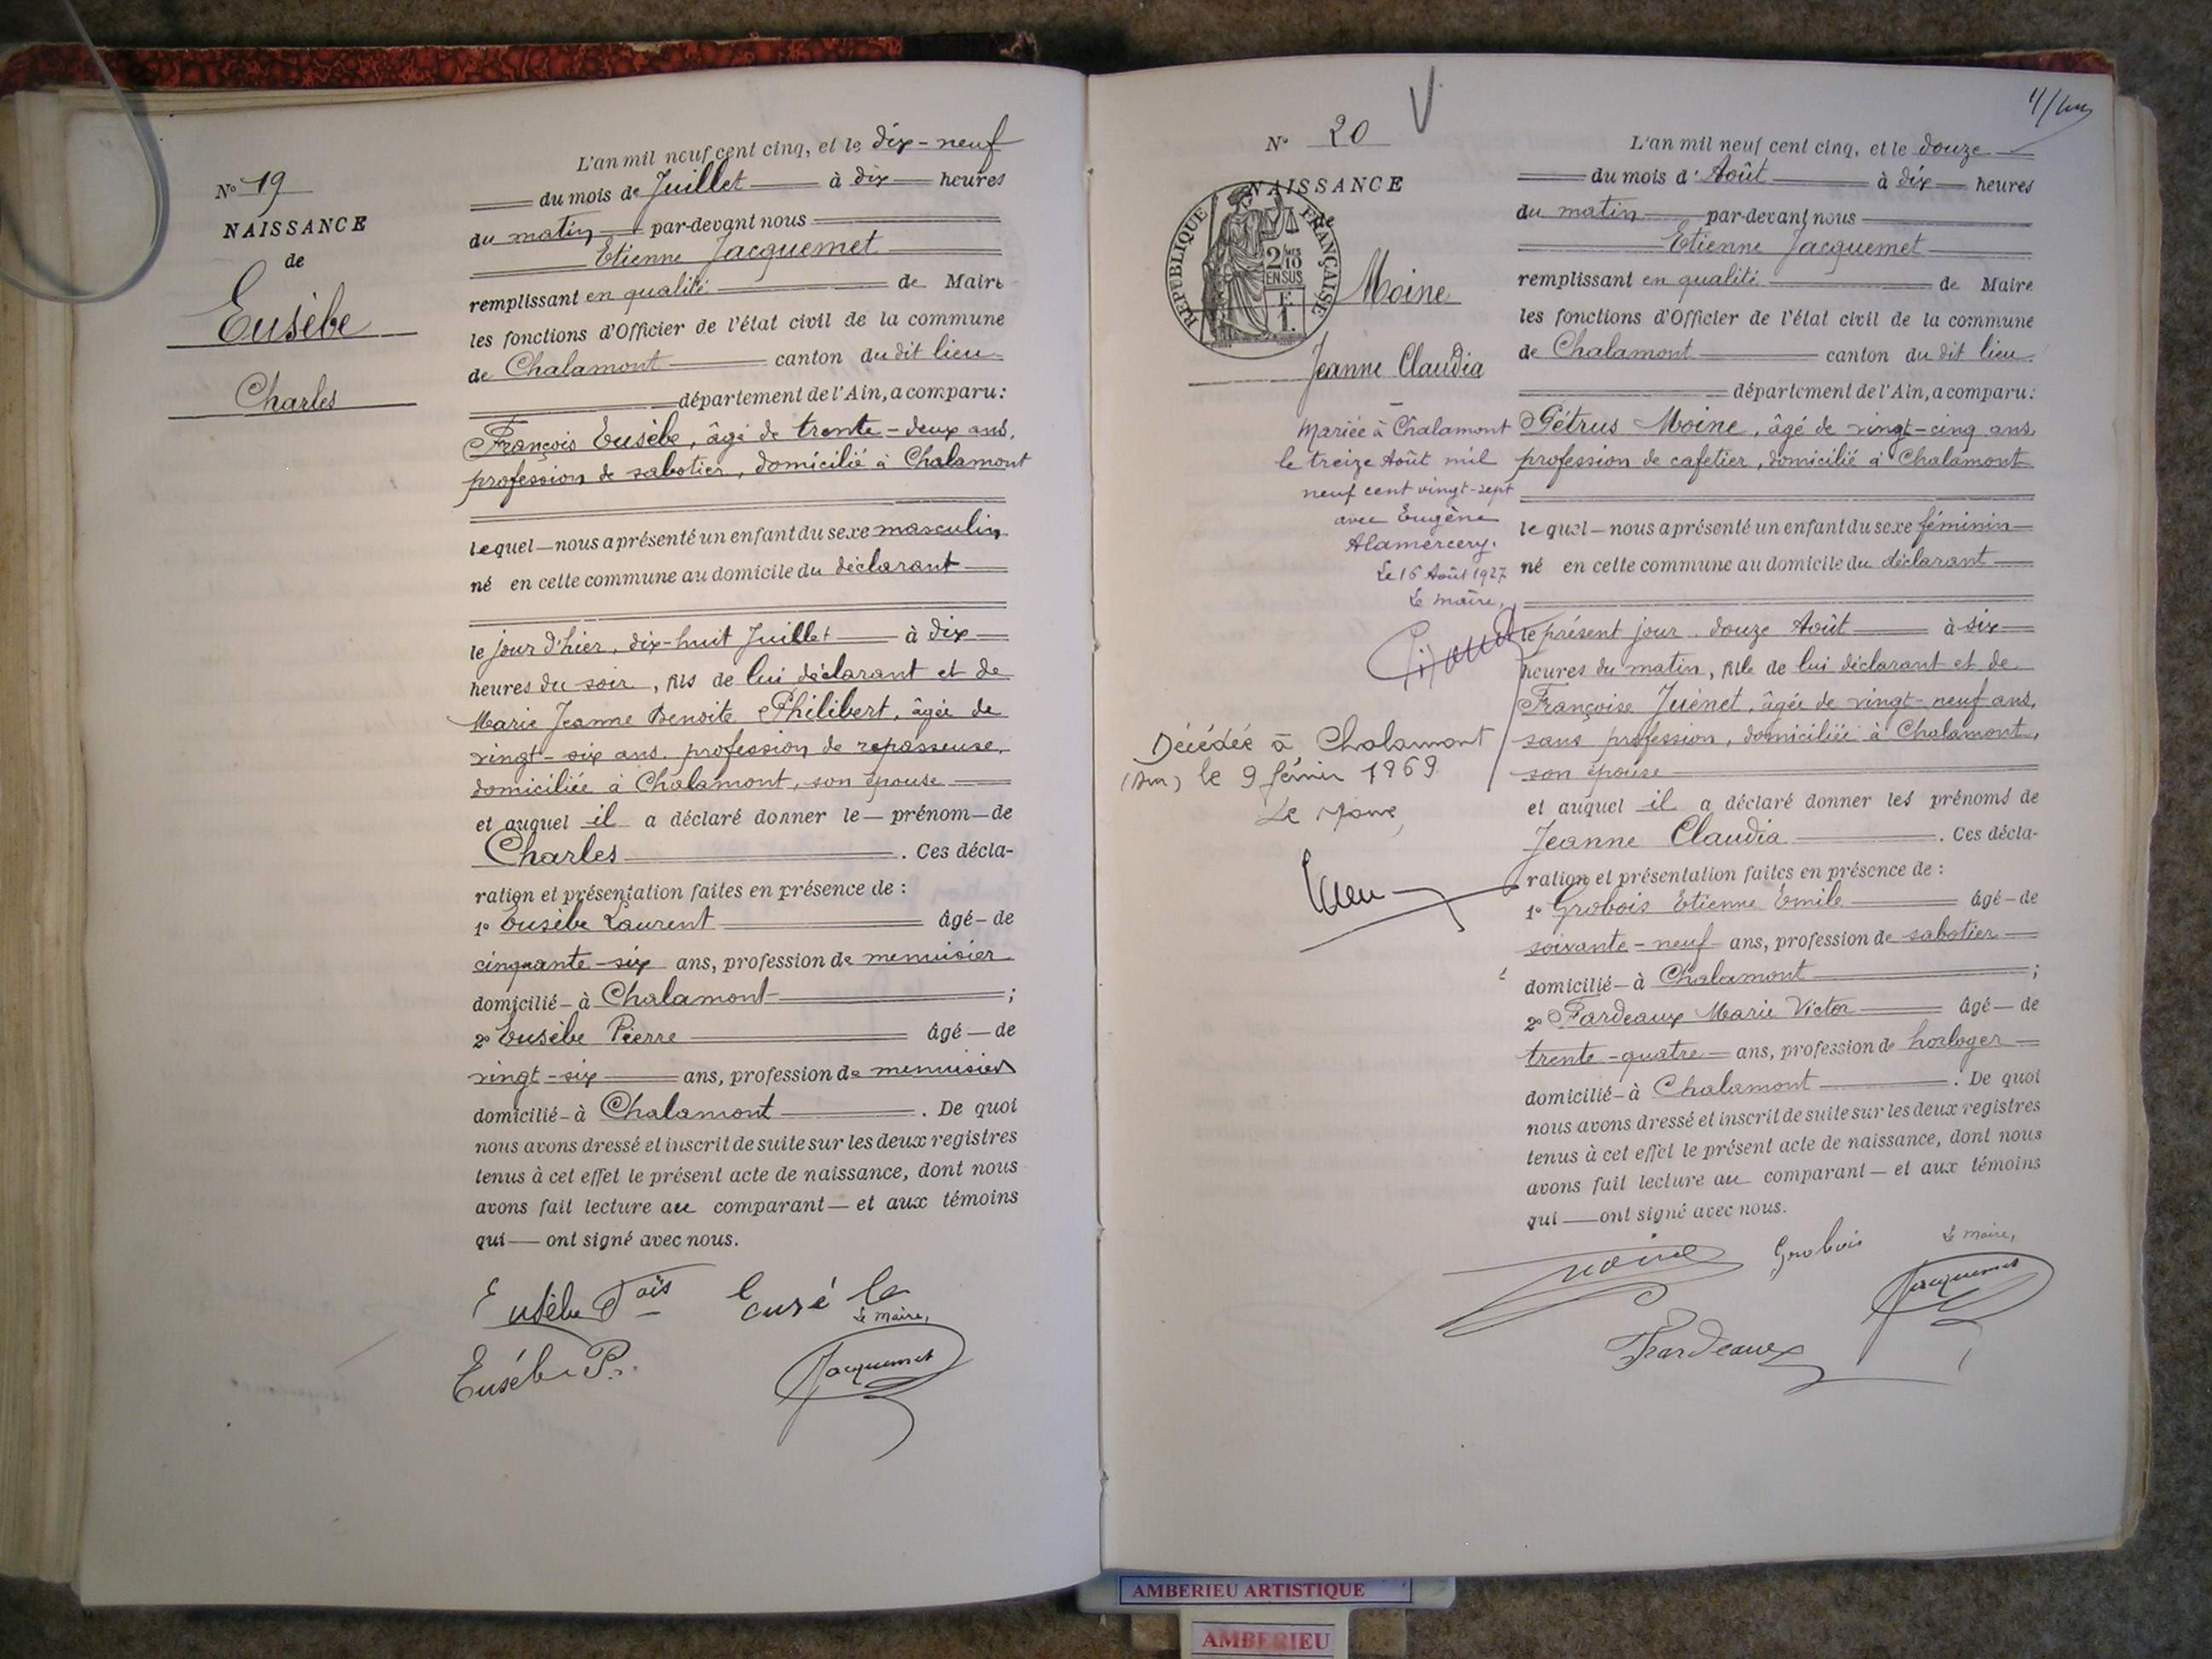 N° 19
NAISSANCE
de
Eusèbe
Charles
L'an mil neuf cent cinq, et le dix-neuf
du mois de Juillet à dix heures
du matin par-devant nous
Etienne Jacquemet
remplissant en qualité de Maire
les fonctions d'Officier de l'état civil de la commune
de Chalamont canton du dit lieu
département de l'Ain, a comparu:
François Eusèbe, âgé de trente-deux ans,
profession de sabotier, domicilié à Chalamont
lequel nous a présenté un enfant du sexe masculin
né en cette commune au domicile du déclarant
le jour d'hier, dix-huit Juillet à dix
heures du soir, fils de lui déclarant et de
Marie Jeanne Benoite Philibert, âgée de
vingt-six ans, profession de repasseuse,
domiciliée à Chalamont, son épouse
et auquel il a déclaré donner le prénom de
Charles. Ces décla-
ration et présentation faites en présence de :
1° Eusèbe Laurent âgé de
cinquante-six ans, profession de menuisier
domicilié à Chalamont ;
2° Eusèbe Pierre âgé de
vingt-six ans, profession de menuisier
domicilié à Chalamont. De quoi
nous avons dressé et inscrit de suite sur les deux registres
tenus à cet effet le présent acte de naissance, dont nous
avons fait lecture au comparant et aux témoins
qui ont signé avec nous.
Eusèbe Fois
Le maire,
Eusébe P.
Jacquemet
N° 20
V
NAISSANCE
de
RÉPUBLIQUE FRANÇAISE
2/10
EN SUS
Moine
Jeanne Claudia
Mariée à Chalamont
le treize Août mil
neuf cent vingt-sept
avec Eugène
Alamercery.
Le 16 Août 1927
Le maire,
Décédée à Chalamont
(Ain) le 9 février 1969
Le Maire,
L'an mil neuf cent cinq, et le douze
du mois d'Août à dix heures
du matin par-devant nous
Etienne Jacquemet
remplissant en qualité de Maire
les fonctions d'Officier de l'état civil de la commune
de Chalamont canton du dit lieu
département de l'Ain, a comparu:
Pétrus Moine, âgé de vingt-cinq ans,
profession de cafetier, domicilié à Chalamont
lequel nous a présenté un enfant du sexe féminin
né en cette commune au domicile du déclarant
le présent jour douze Août à six
heures du matin, fille de lui déclarant et de
Françoise Juénet, âgée de vingt-neuf ans,
sans profession, domiciliée à Chalamont,
son épouse
et auquel il a déclaré donner les prénoms de
Jeanne Claudia. Ces décla-
ration et présentation faites en présence de :
1° Grobois Etienne Emile âgé de
soixante-neuf ans, profession de sabotier
domicilié à Chalamont ;
2° Fardeaux Marie Victor âgé de
trente-quatre ans, profession de horloger
domicilié à Chalamont. De quoi
nous avons dressé et inscrit de suite sur les deux registres
tenus à cet effet le présent acte de naissance, dont nous
avons fait lecture au comparant et aux témoins
qui ont signé avec nous.
Moine
Grobois
Le maire,
Jacquemet
Fardeaux
AMBERIEU ARTISTIQUE
AMBERIEU